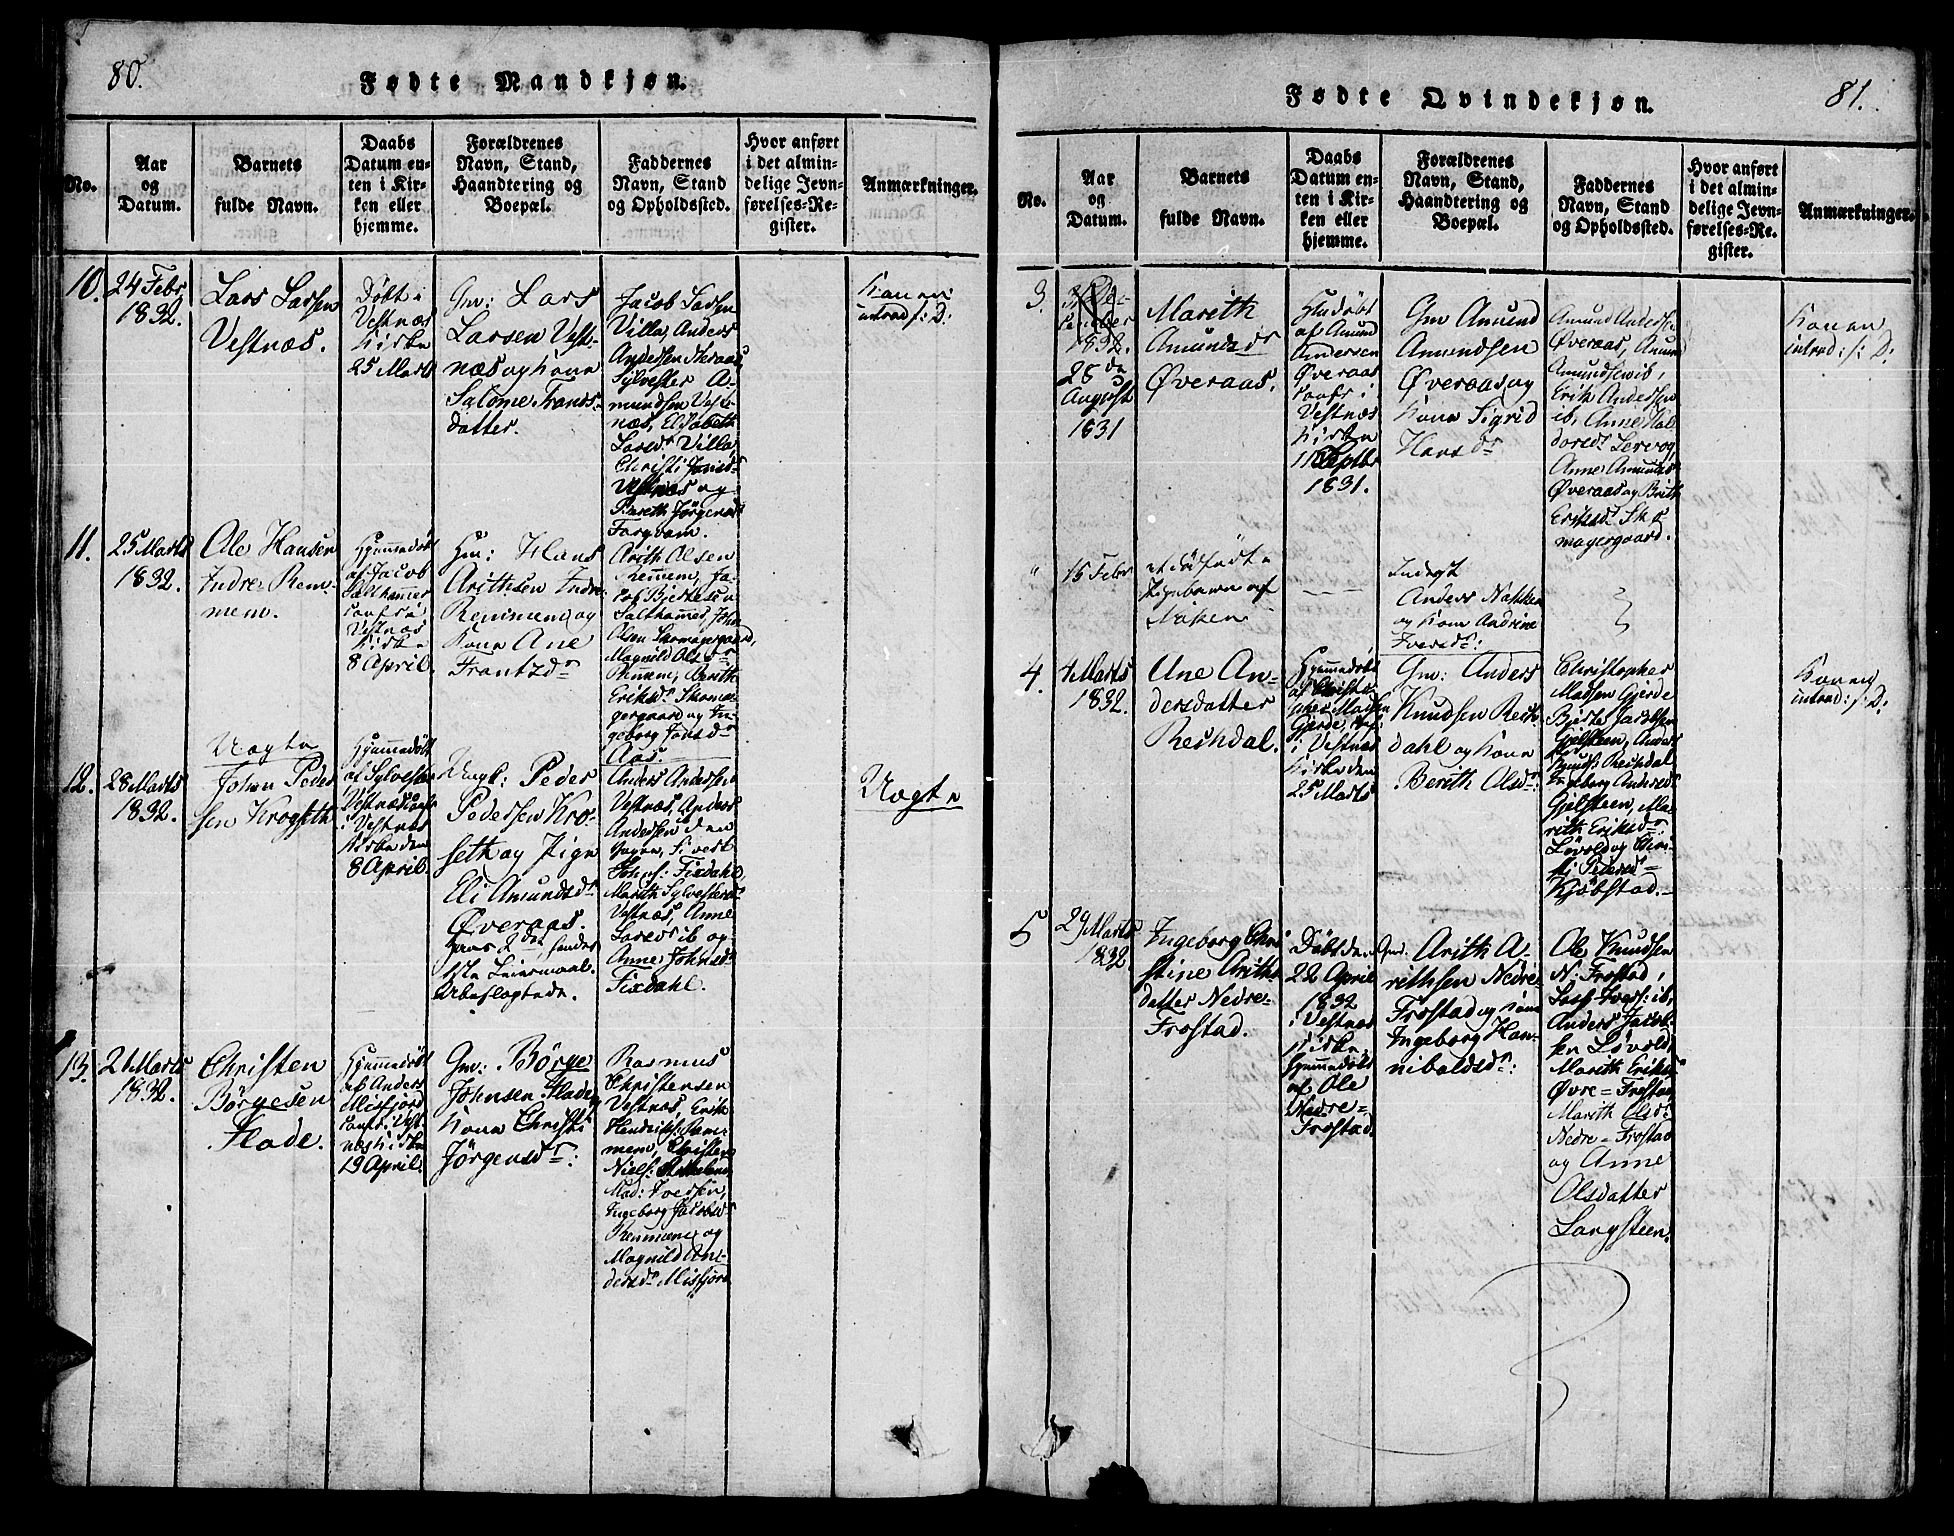 80.
Fødte Mandkjøn.
No.
Aar
og
Datum.
Barnets
fulde Navn.
Daabs
Datum en-
ten i Kir-
ken eller
hjemme.
Forældrenes
Navn, Stand,
Haandtering og
Boepæl.
Faddernes
Navn, Stand
og Opholdssted.
Hvor anført
i det almin-
delige Jevn-
førelses-Re-
gister.
Anmærkninger.
10.
24 Febr
1832.
Lars Larsen
Vestnæs.
Døbt i
Vestnæs
Kirke
25 Marts
Gm: Lars
Larsen Vest-
næs og Kone
Salome Frands-
datter.
Jacob Larsen
Villa, Anders
Andersen
Sylvester A-
mundsen Vest-
næs, Elisabeth
Larsdr Villa,
Christi Jonsdr
Vestnæs og
Bereth Jørgensdr
Konen
introd :/: D:
11.
25 Marts
1832.
Ole Hansen
Indre Rem-
mem.
Hjemmedøbt
af Jacob
Salthamer
confr i
Vestnæs
Kirke
8 April.
Gm: Hans
Arithsen Indre
Remmem og
Kone Ane
Frantzdr
Arith Olsen
Remmem, Ja-
cob
Salthammer, John
Olsen Skomagergaard,
Magnild Olsdr
Berith
Eriksdr Skoma-
gergaard og In-
geborg Jonsdr
Aas.
12.
28 Marts
1832.
Uægte
Johan Peder-
sen Krogseth
Hjemmedøbt
af Sylvester
Vestnæs conf
i Vestnæs
Kirke den
8 April.
Ungk: Peder
Pedersen Kro-
seth og Pige
Eli Amundsdr
Øveraas.
hans 2det hendes
1ste Leiermaal.
Anders Andersen
Vestnæs, Anders
Andersen
Sivert
Johns: Fixdahl,
Marith Sylvestersdr
Vestnæs, Anne
Larsdr ib og
Anne Johnsdr
Fixdahl.
Uægte
13.
21 Marts
1832.
Christen
Børgesen
Flade.
Hjemmedøbt
af Anders
Misfjord
confr i Vest-
næs Kirke
19 April.
Gm: Børge
Johnsen Flade og
Kone Christi
Jørgensdr:
Rasmus
Christensen
Vestnæs, Erik
Hendriks: Rem-
mem, Christen
Niels:
Mad: Iversen,
Ingeborg Jacobsdr
Remmem og
Magnild An-
dersdr Misfjord
81.
Fødte Qvindekjøn.
No.
Aar
og
Datum.
Barnets
fulde Navn.
Daabs
Datum en-
ten i Kir-
ken eller
hjemme.
Forældrenes
Navn, Stand,
Haandtering og
Boepæl.
Faddernes
Navn, Stand
og Opholdssted.
Hvor anført
i det almin-
delige Jevn-
førelses-Re-
gister.
Anmærkninger.
3.
1832.
28 de
August
1831
Marith
Amundsdr
Øveraas.
Hjmdøbt
af Amund
Andersen
Øveraas
confr i
Vestnæs
Kirke
11 Septbr
1831.
Gm Amund
Amundsen
Øveraas og
Kone Sigrid
Hansdr
Amund Andersen
Øveraas, Amund
Amundsen ib,
Erik Andersen
ib, Anne Hal-
dorsdr
Anne Amundsdr
Øveraas og Brith
Eriksdr Sko-
magergaard.
Konen
introd: :/: D:
"
15 Febr
et dødfødt
Pigebarn af
Nakken
Inderst
Anders Nakken
og Kone Andrine
Iversdr:
4.
4 Marts
1832.
Ane An-
dersdatter
Rechdal.
Hjemmedøbt
af Christo-
pher Madsen
Gjerde,
i Vestnæs
Kirke den
25 Marts
Gm: Anders
Knudsen Rech-
dahl og Kone
Berith Olsdr:
Christopher
Madsen Gjerde
Jacobsen
Gjelsteen, Anders
Knuds: Rechdal
Ingeborg Andersdr
Gjelsteen, Ma-
rith Eriksdr
Løvold og
Pedersdr
Kjøbstad.
Konen
introd: :/: D:
5
29 Marts
1832.
Ingeborg Chri-
stine Ariths-
datter Nedre=
Frostad.
Døbt den
22 April
1832
i Vestnæs
Kirke
Hjemmedøbt
af Ole
Nedre=
Frostad.
Gm: Arith A-
rithsen Nedre-
Frostad og Kone
Ingeborg Han-
nibalsdr:
Ole Knudsen
N: Frostad,
Lars Ivers: ib,
Anders Jacob-
sen Løvold,
Marith Eriksdr
Øvre=Frostad
Marith Olsdr
Nedre=Frostad
og Anne
Olsdatter
Langsteen.